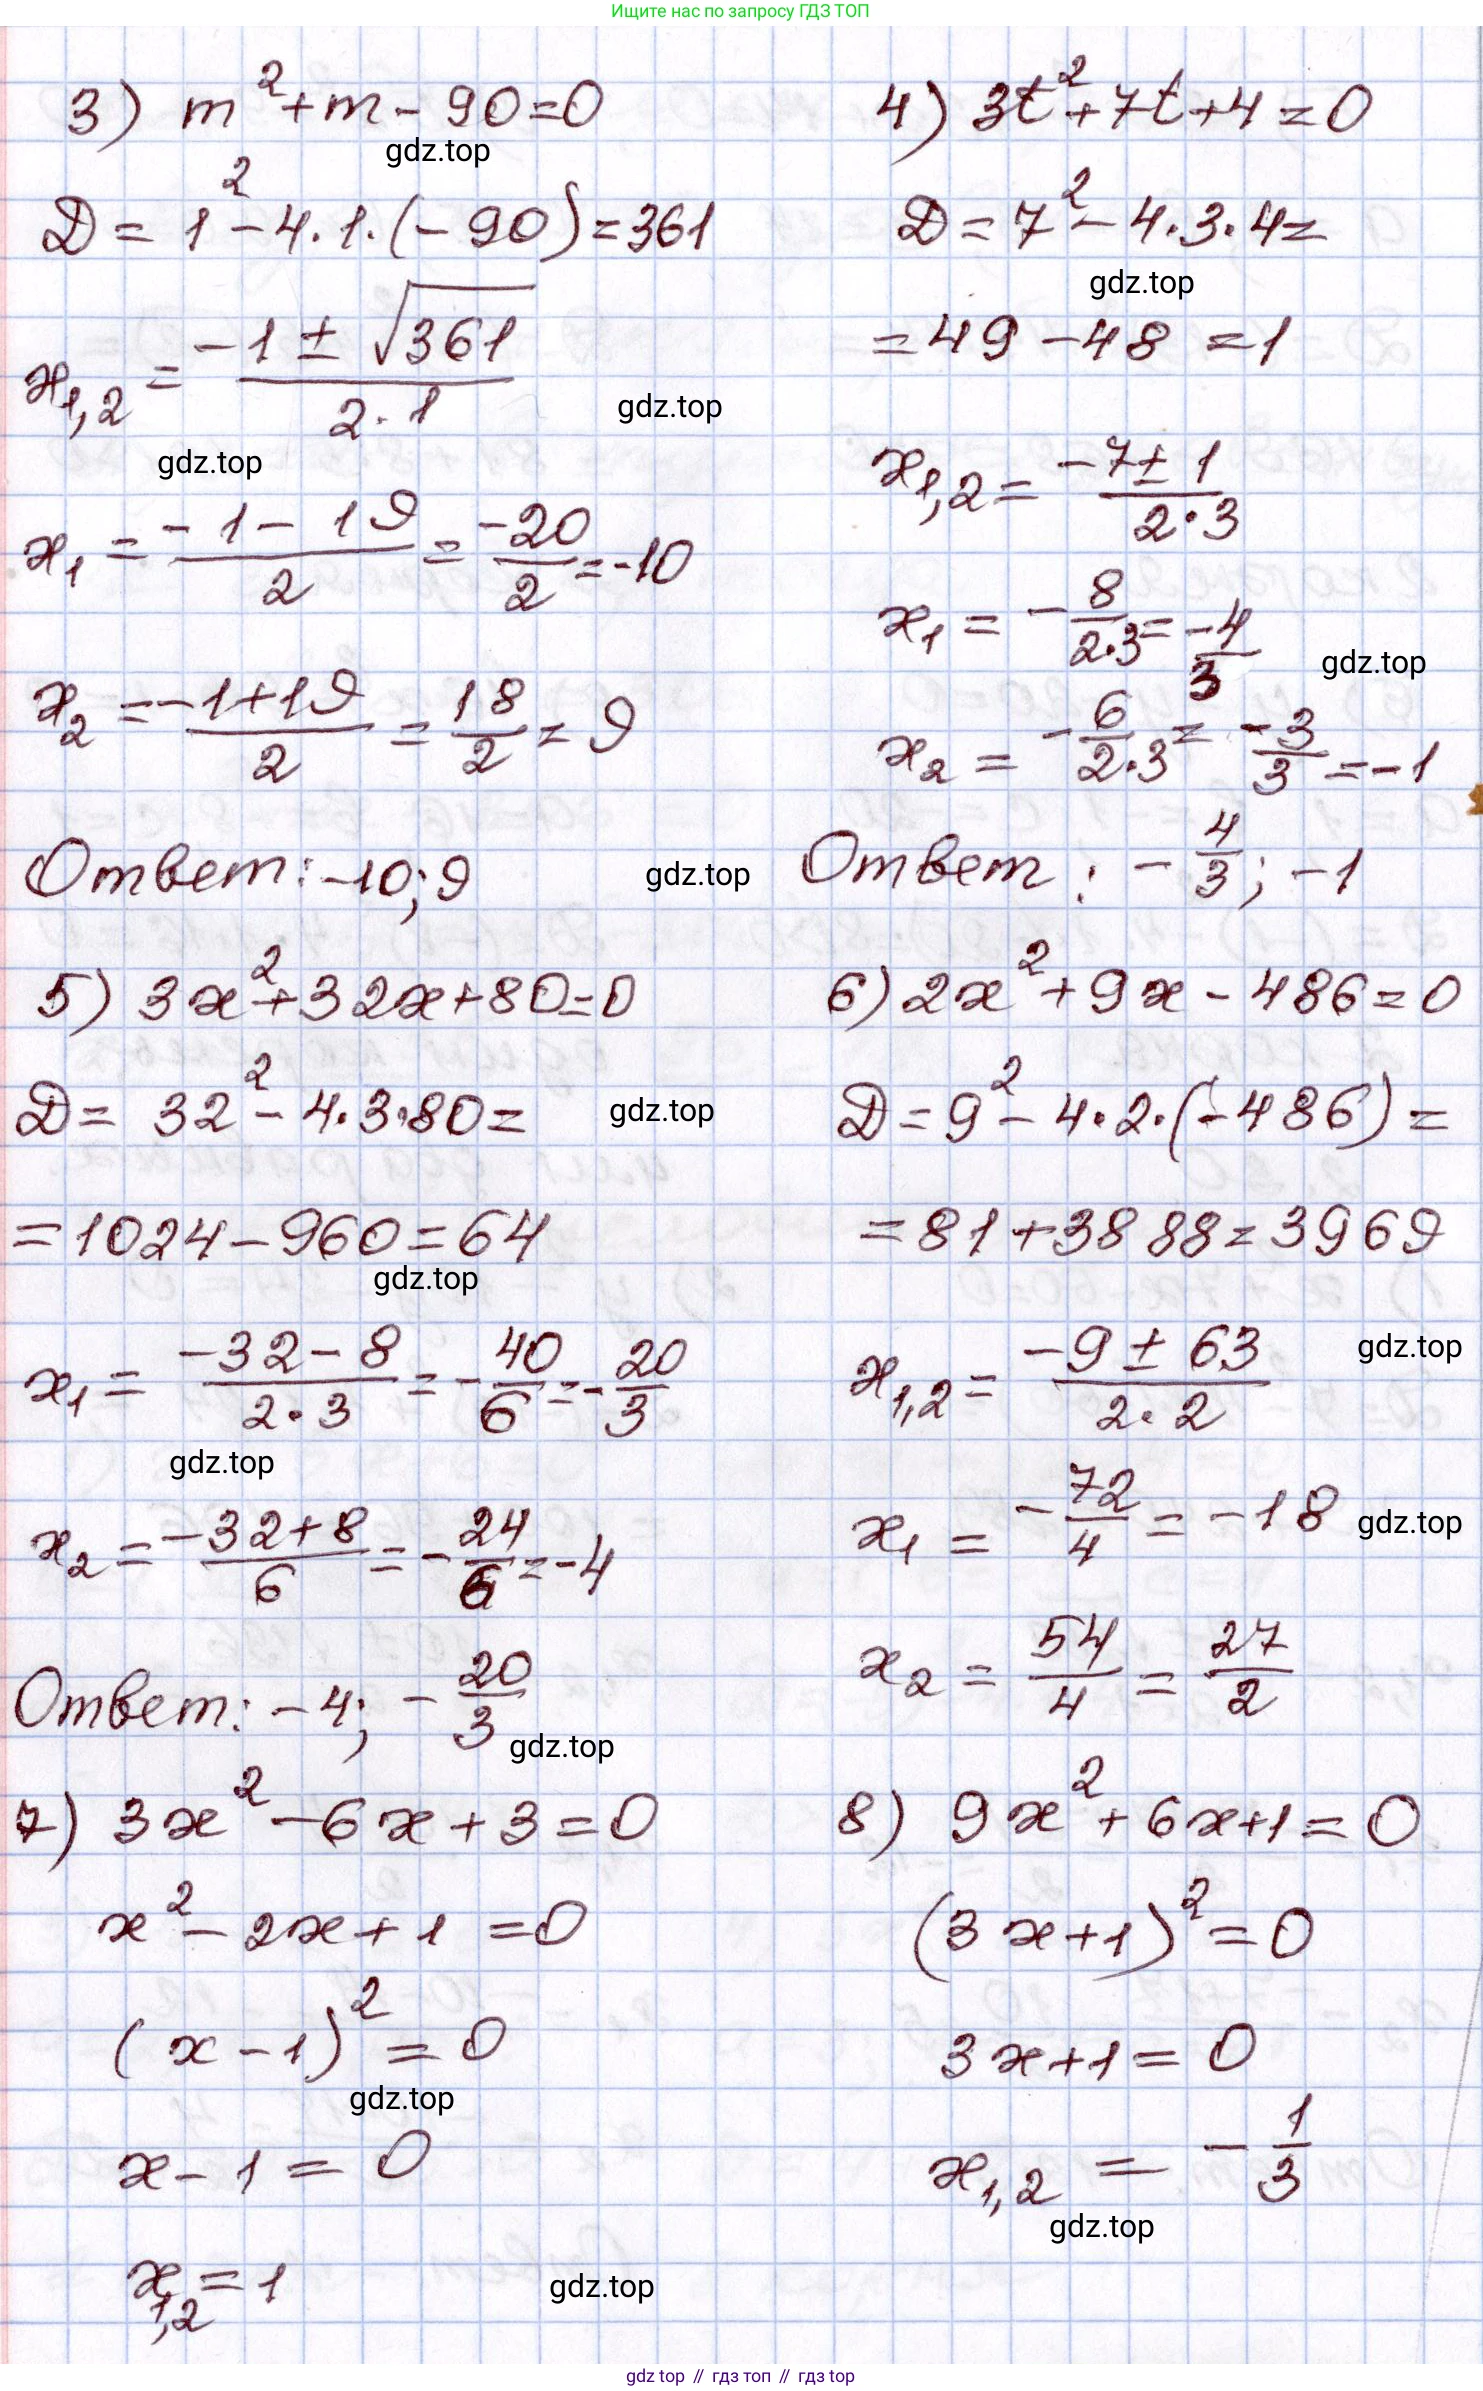 Ищите нас по запросу ГДЗ ТОП
3) m² + m - 90 = 0
gdz.top
D = 1² - 4·1·(-90) = 361
x₁,₂ = (-1 ± √361)/(2·1)
gdz.top
gdz.top
x₁ = (-1 - 19)/2 = -20/2 = -10
x₂ = (-1 + 19)/2 = 18/2 = 9
Ответ: -10; 9
gdz.top
4) 3t² + 7t + 4 = 0
D = 7² - 4·3·4 =
gdz.top
= 49 - 48 = 1
x₁,₂ = (-7 ± 1)/(2·3)
x₁ = -8/(2·3) = -4/3
gdz.top
x₂ = -6/(2·3) = -3/3 = -1
Ответ: -4/3; -1
5) 3x² + 32x + 80 = 0
D = 32² - 4·3·80 =
gdz.top
= 1024 - 960 = 64
gdz.top
x₁ = (-32 - 8)/(2·3) = -40/6 = -20/3
gdz.top
x₂ = (-32 + 8)/6 = -24/6 = -4
Ответ: -4; -20/3
gdz.top
6) 2x² + 9x - 486 = 0
D = 9² - 4·2·(-486) =
= 81 + 3888 = 3969
x₁,₂ = (-9 ± 63)/(2·2)
gdz.top
x₁ = -72/4 = -18
gdz.top
x₂ = 54/4 = 27/2
7) 3x² - 6x + 3 = 0
x² - 2x + 1 = 0
(x - 1)² = 0
gdz.top
x - 1 = 0
x₁,₂ = 1
gdz.top
8) 9x² + 6x + 1 = 0
(3x + 1)² = 0
3x + 1 = 0
x₁,₂ = -1/3
gdz.top
gdz top // гдз топ // гдз top